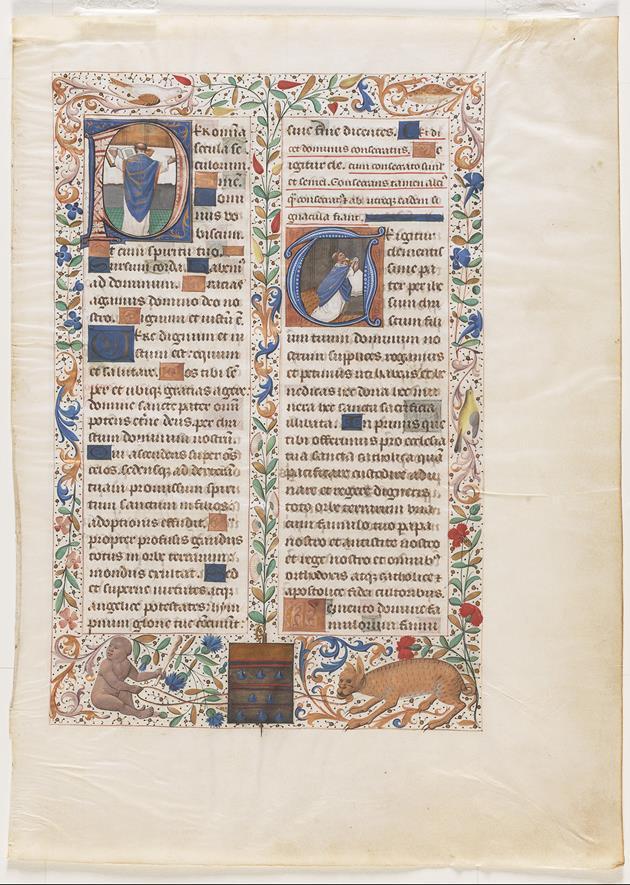 Per omnia
secula se
culorum.
Amen.
Domi
nus vo
biscum.
Et cum spiritu tuo.
Sursum corda. Habem9
ad dominum. Gratias
agamus domino deo no
stro. Dignum et iustū ē.
Vere dignum et iu
stum est: equum
et salutare. Nos tibi sē
per et ubiqȝ gratias agere:
domine sancte pater om̄i
potens et̄ne deus. per chri
stum dominum nostrū.
Qui ascendens super om̄s
celos. sedensqȝ ad dexterā
tuam promissum spiri
tum sanctum in filios
adoptionis effudit. Qua
propter profusis gaudiis
totus in orbe terrarum
mundus exultat. Sed
et superne virtutes. atqȝ
angelice potestates: hym
pnum glorie tue concinunt
sine fine dicentes.
igitur
Te igitur
clementis
sime pa
ter per ihe
sum chri
stum fili
um tuum dominum no
strum supplices rogamus
et petimus uti habeas et be
nedicas hec dona hec mu
nera hec sancta sacrificia
illibata. In primis que
tibi offerimus pro ecclesia
tua sancta catholica quā
pacificare custodire adu
nare et regere digneris
toto orbe terrarum una
cum famulo tuo papa
nostro et antistite nostro
et rege nostro et omnibȝ
orthodoxis atqȝ catholice et
apostolice fidei cultoribus.
Memento domine fa
mulorum famu